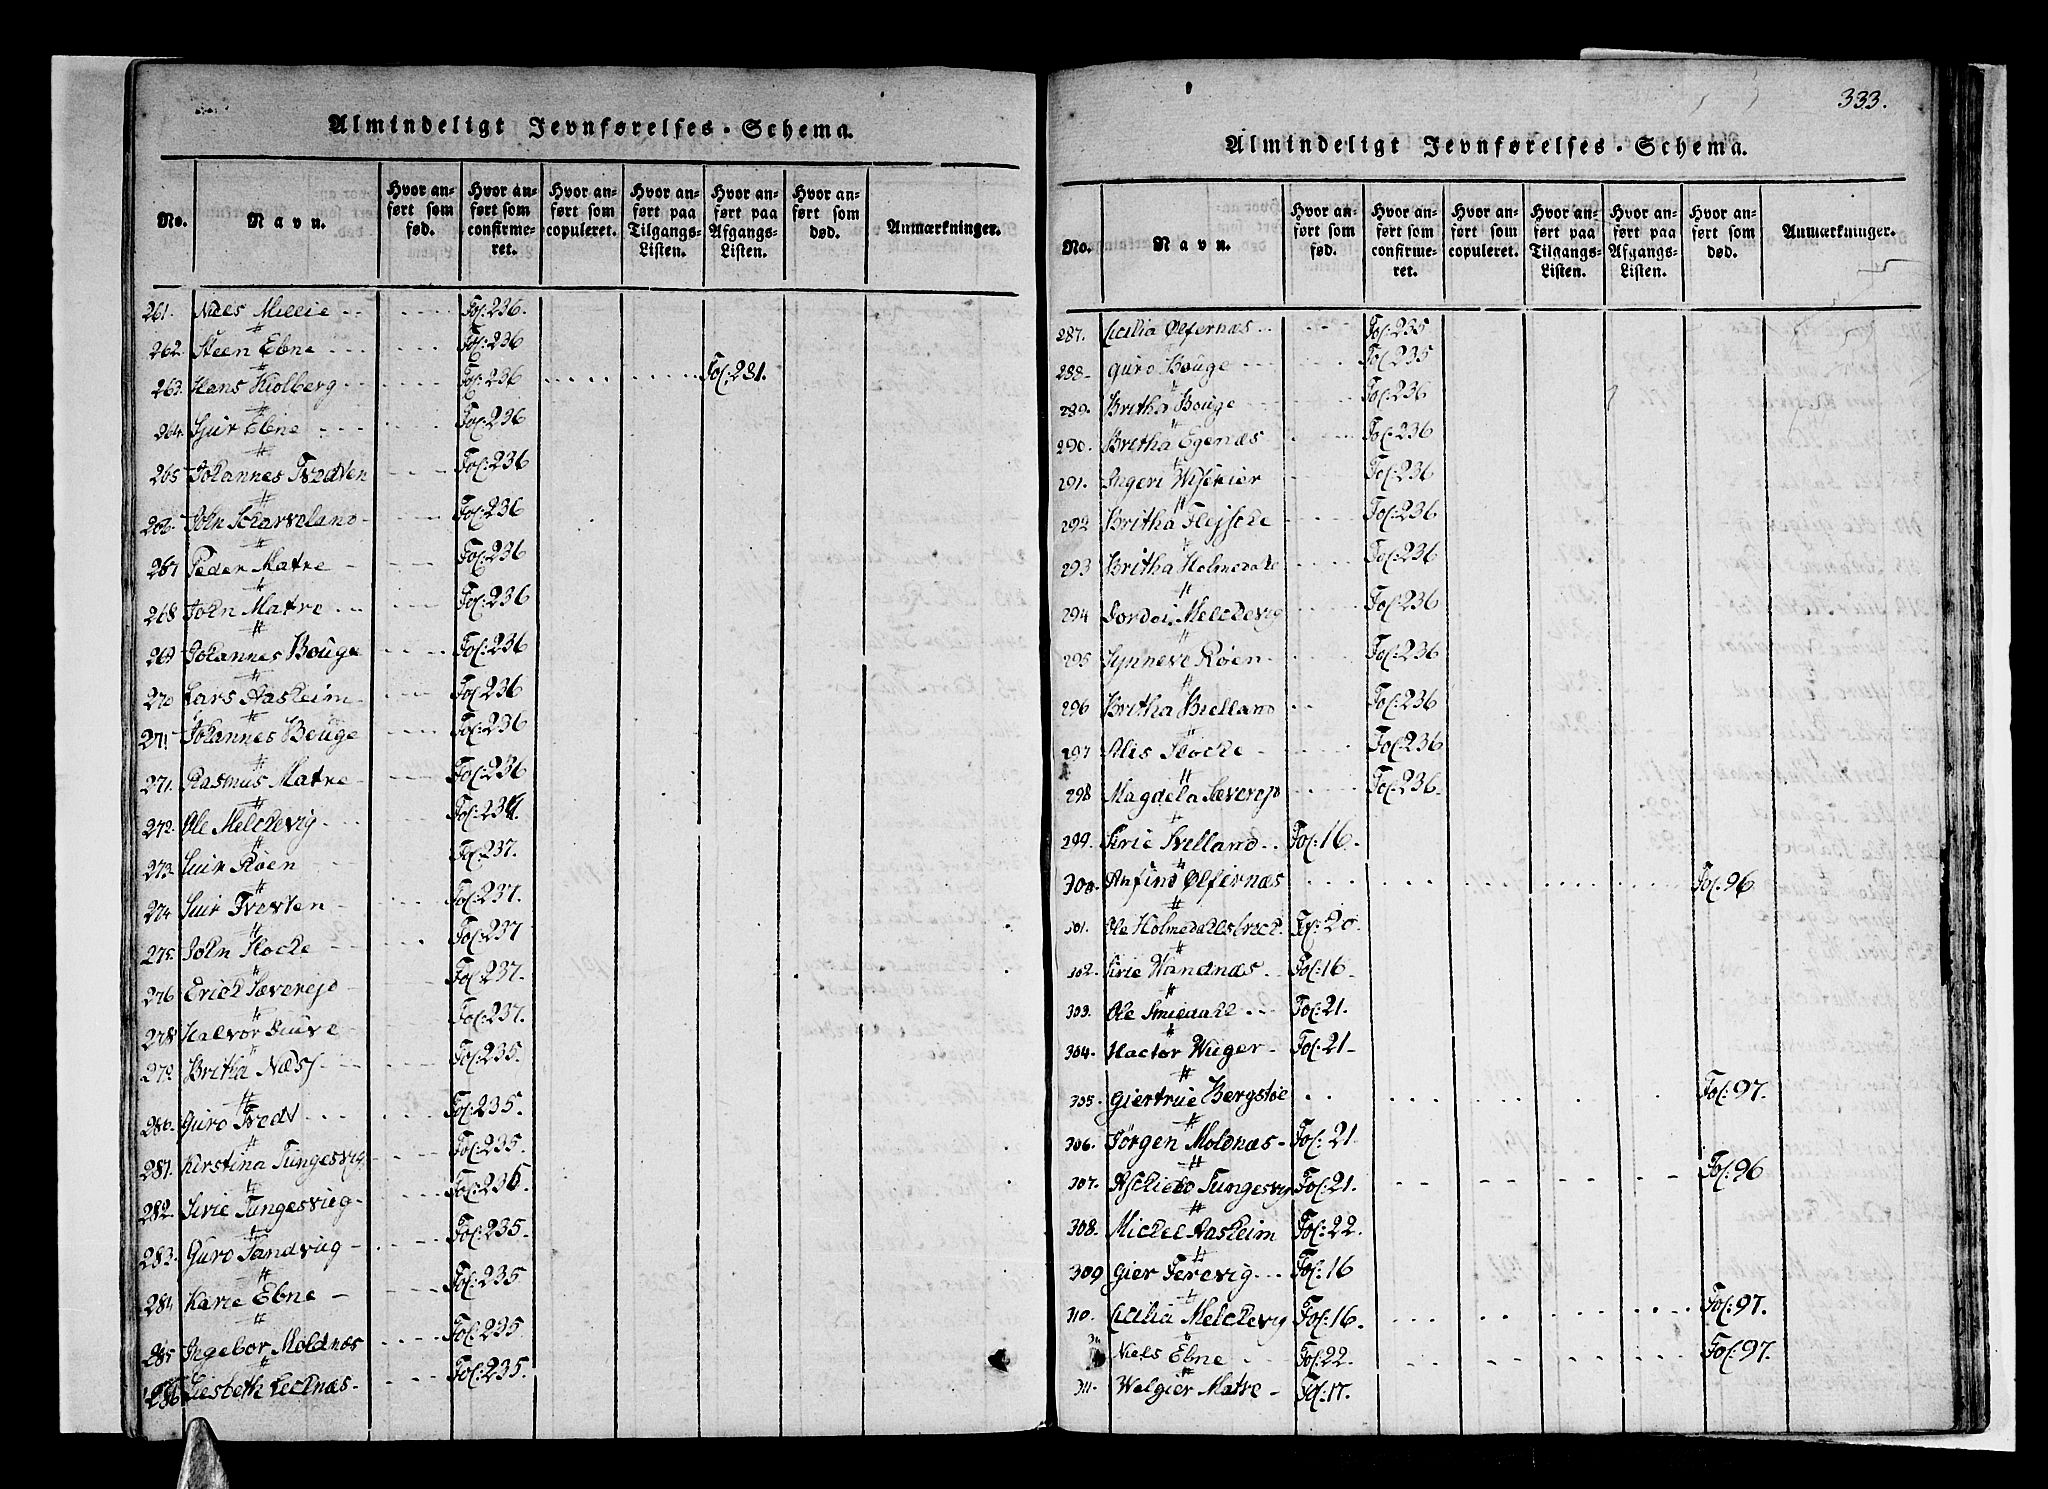 Almindeligt Jevnførelses-Schema.
No. Navn. Hvor anført som fød. Hvor anført som confirmeret. Hvor anført som copuleret. Hvor anført paa Tilgangs-Listen. Hvor anført paa Afgangs-Listen. Hvor anført som død. Anmærkninger.
261. Niels Millie Fol: 236.
262. Steen Ebne Fol: 236
263. Hans Kiolberg Fol: 236 Fol: 281.
264. Sjur Ebne Fol: 236
265 Johannes Trædten Fol: 236
266. John Scharveland Fol: 236
267 Peder Matre Fol: 236
268 John Matre Fol: 236
269 Johannes Bouge Fol: 236
270 Lars Aasheim Fol: 236
271 Johannes Bouge Fol: 236
271. Rasmus Matre Fol: 236
272. Ole Melchevig Fol: 236.
273. Siur Røen Fol: 237.
274 Siur Trerten Fol: 237.
275. John Flocke Fol: 237
276 Erich Sæverejd Fol: 237.
278 Halvor Huuve Fol: 237.
279 Britha Næss Fol: 235.
280. Guro Tredt Fol: 235.
281. Kirstina Tungesvig Fol: 235.
282. Sirie Tungesvieg Fol: 235.
283. Guro Sandvüg Fol: 235.
284 Karie Ebne Fol: 235.
285 Ingebor Moldnæs Fol: 235.
286 Liesbeth Lechnæs Fol: 235.
333.
Almindeligt Jevnførelses-Schema.
No. Navn. Hvor anført som fød. Hvor anført som confirmeret. Hvor anført som copuleret. Hvor anført paa Tilgangs-Listen. Hvor anført paa Afgangs-Listen. Hvor anført som død. Anmærkninger.
287. Cicilia Ølfernæs Fol: 235
288 Guro Bouge Fol: 235
289. Britha Bouge Fol: 236
290. Britha Egenæs Fol: 236
291. Ingeri Fol: 236
292 Britha Flejsche Fol: 236
293 Britha Holmedahl Fol: 236
294 Dordei Melchevig Fol: 236
295 Synneve Røen Fol: 236
296 Britha Bielland Fol: 236
297 Alis Flocke Fol: 236
298 Magdela Sæverejd Fol: 236.
299. Sirie Svelland Fol: 16.
300. Anfind Ølfernæs Fol: 96
301. Ole Holmedahlsbreck. Fol: 20.
302. Sirie Wandnæs Fol: 16
303. Ole Smiedahl Fol: 21.
304. Hactor Wuger Fol: 21
305. Giertrue Bergstøe Fol: 97.
306. Jørgen Moldnæs Fol: 21.
307. Aschield Tungesvig Fol: 21. Fol: 96
308. Michel Aasheim Fol: 22.
309 Gier Ferevig Fol: 16
310. Cicilia Melchevig Fol: 16. Fol: 97.
Niels Ebne Fol: 22. Fol: 97.
311. Welgier Matre Fol: 17.